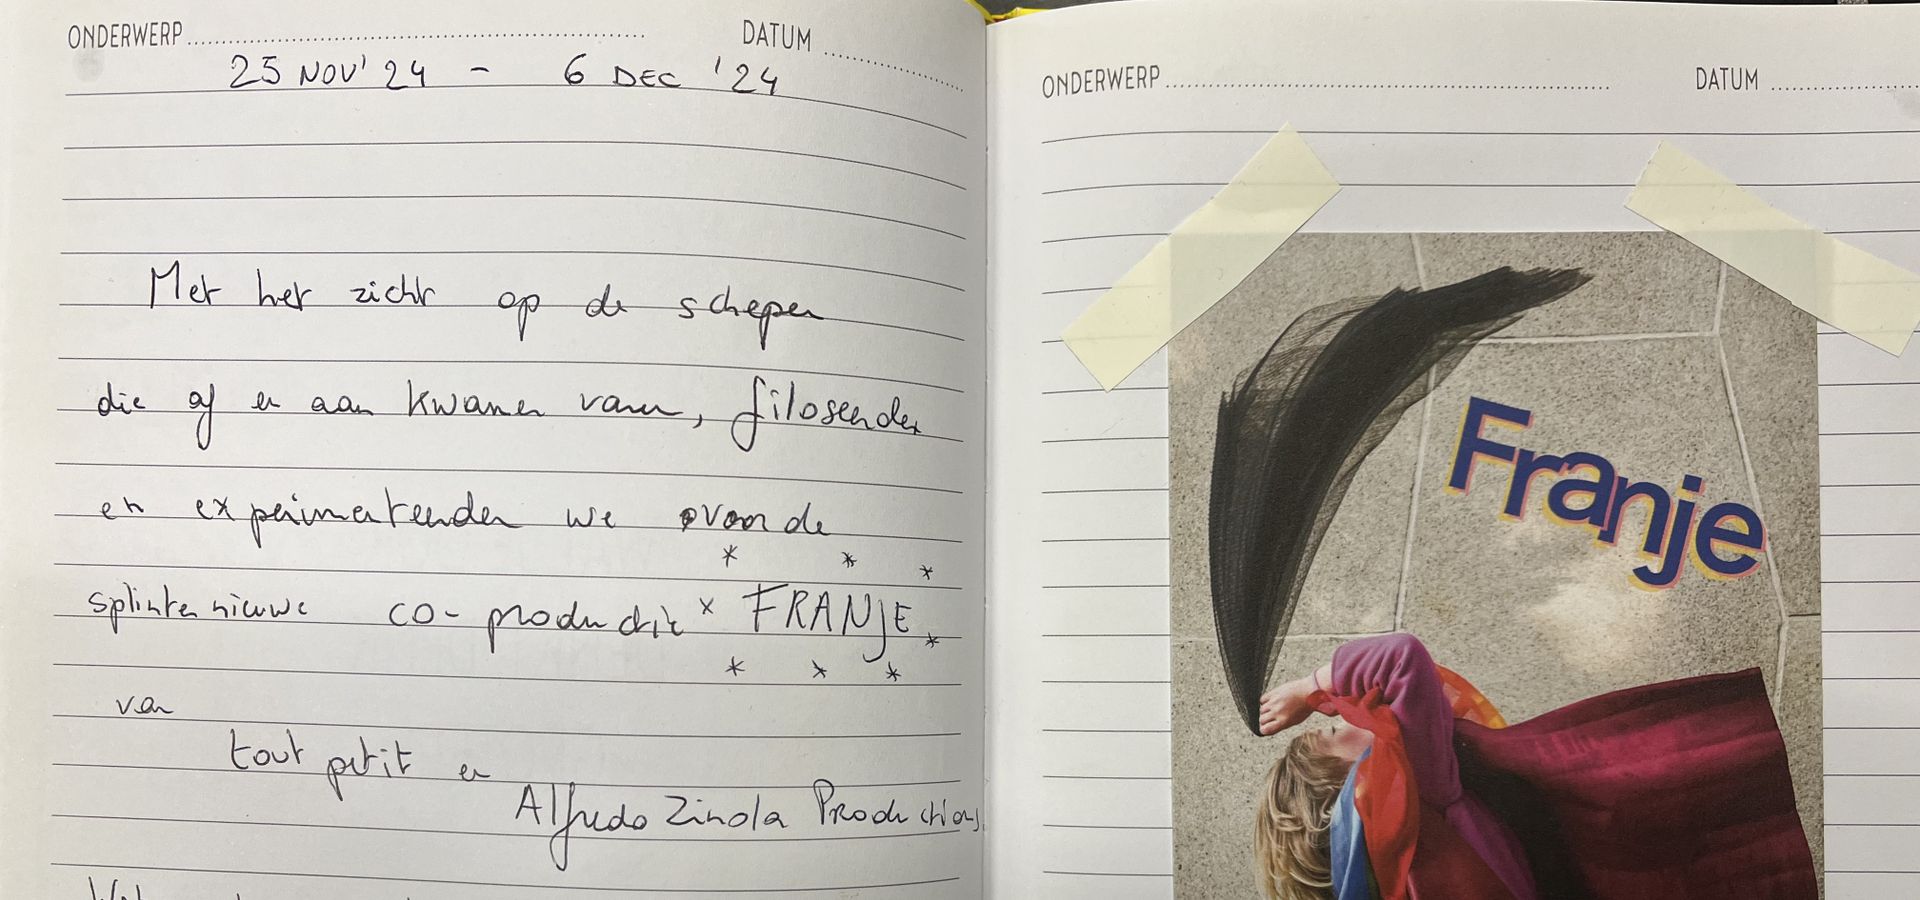 ONDERWERP DATUM
25 NOV' 24 - 6 DEC '24
Met het zicht op de schepen
die af en aan kwamen varen, filoseerden
en experimenteerden we voor de
splinternieuwe co-productie FRANJE
van
tout petit en
Alfredo Zinola Productions
ONDERWERP DATUM
Franje